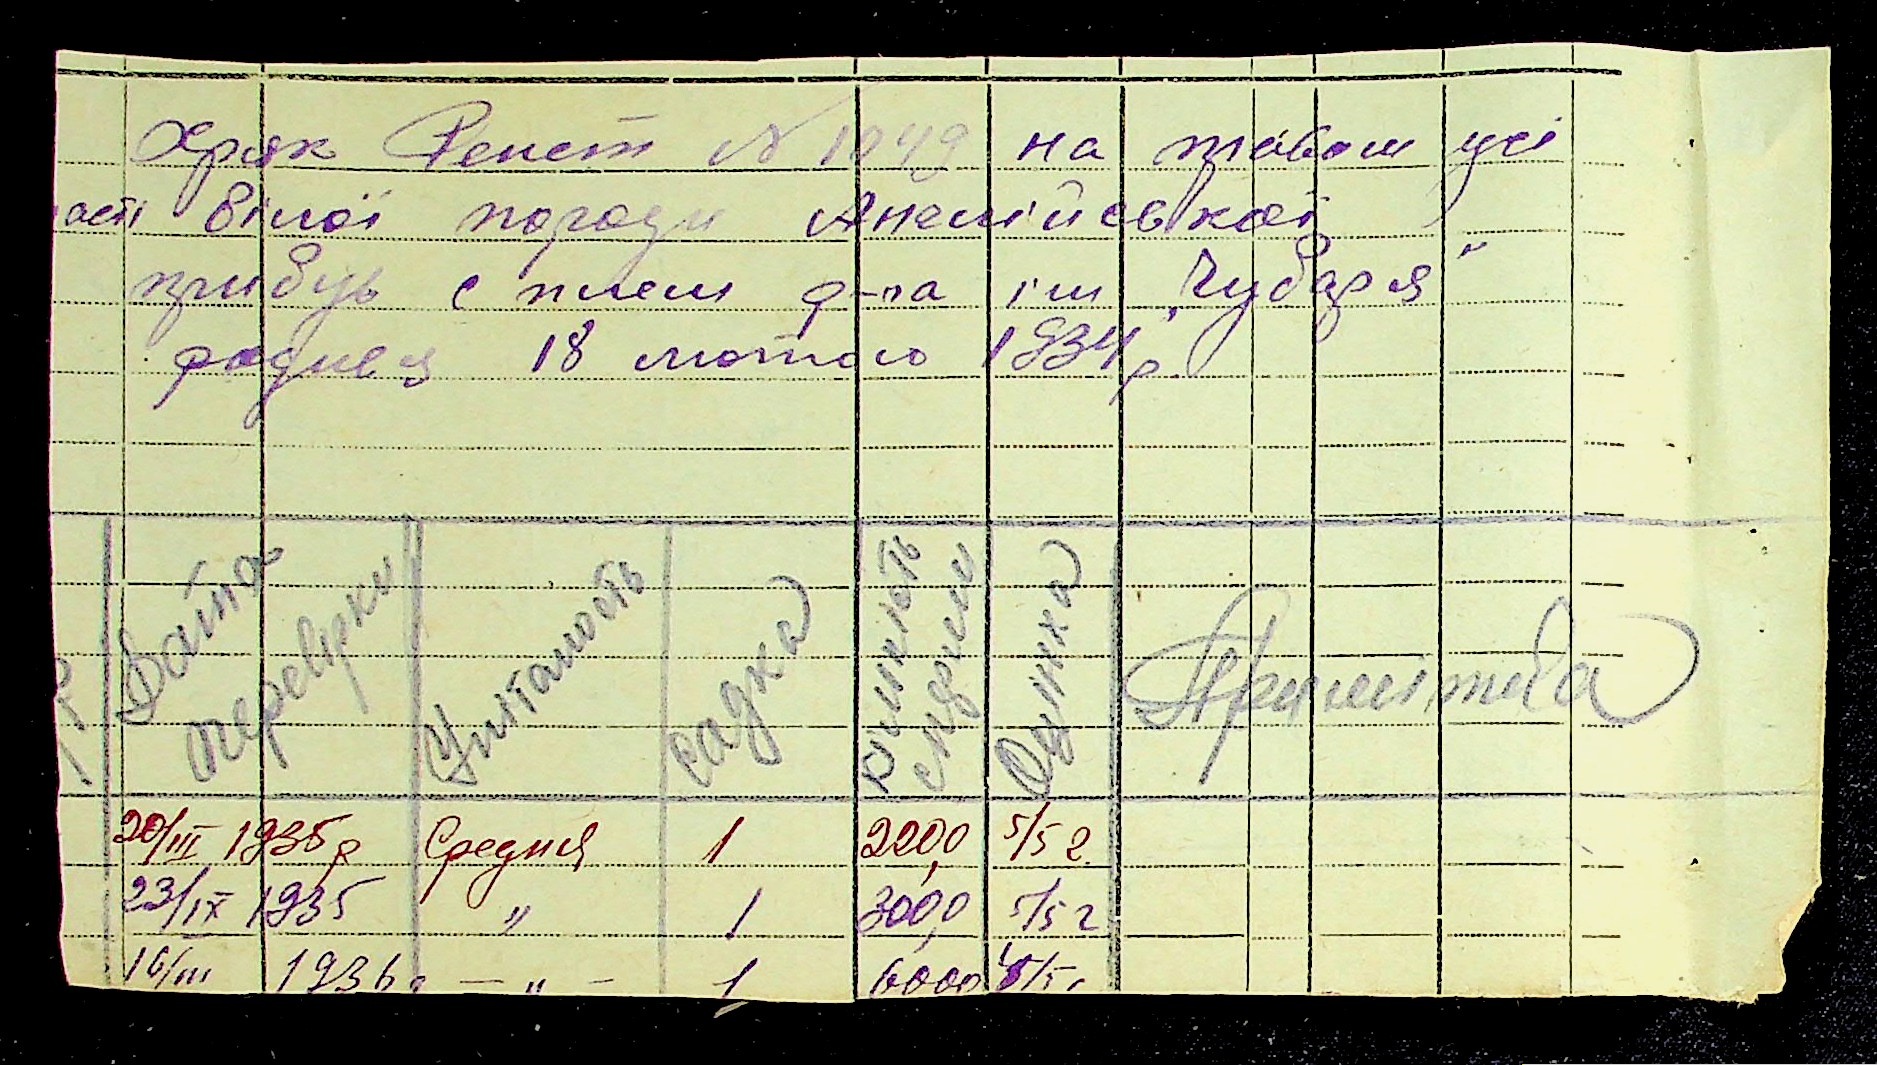 Хряк Ренет № 1049 на правом усі
масті білої породи Англійської
прибув с плем г-па ім „Чубаря"
родився 18 лютого 1934 р.
Дата перевірки Упитаность садка кількість сперми Оцінка Примітка
20/III 1935 р Средня 1 220,0 5/5 г
23/IX 1935 " 1 300,0 5/5 г
16/III 1936 — " — 1 600,0 5/5